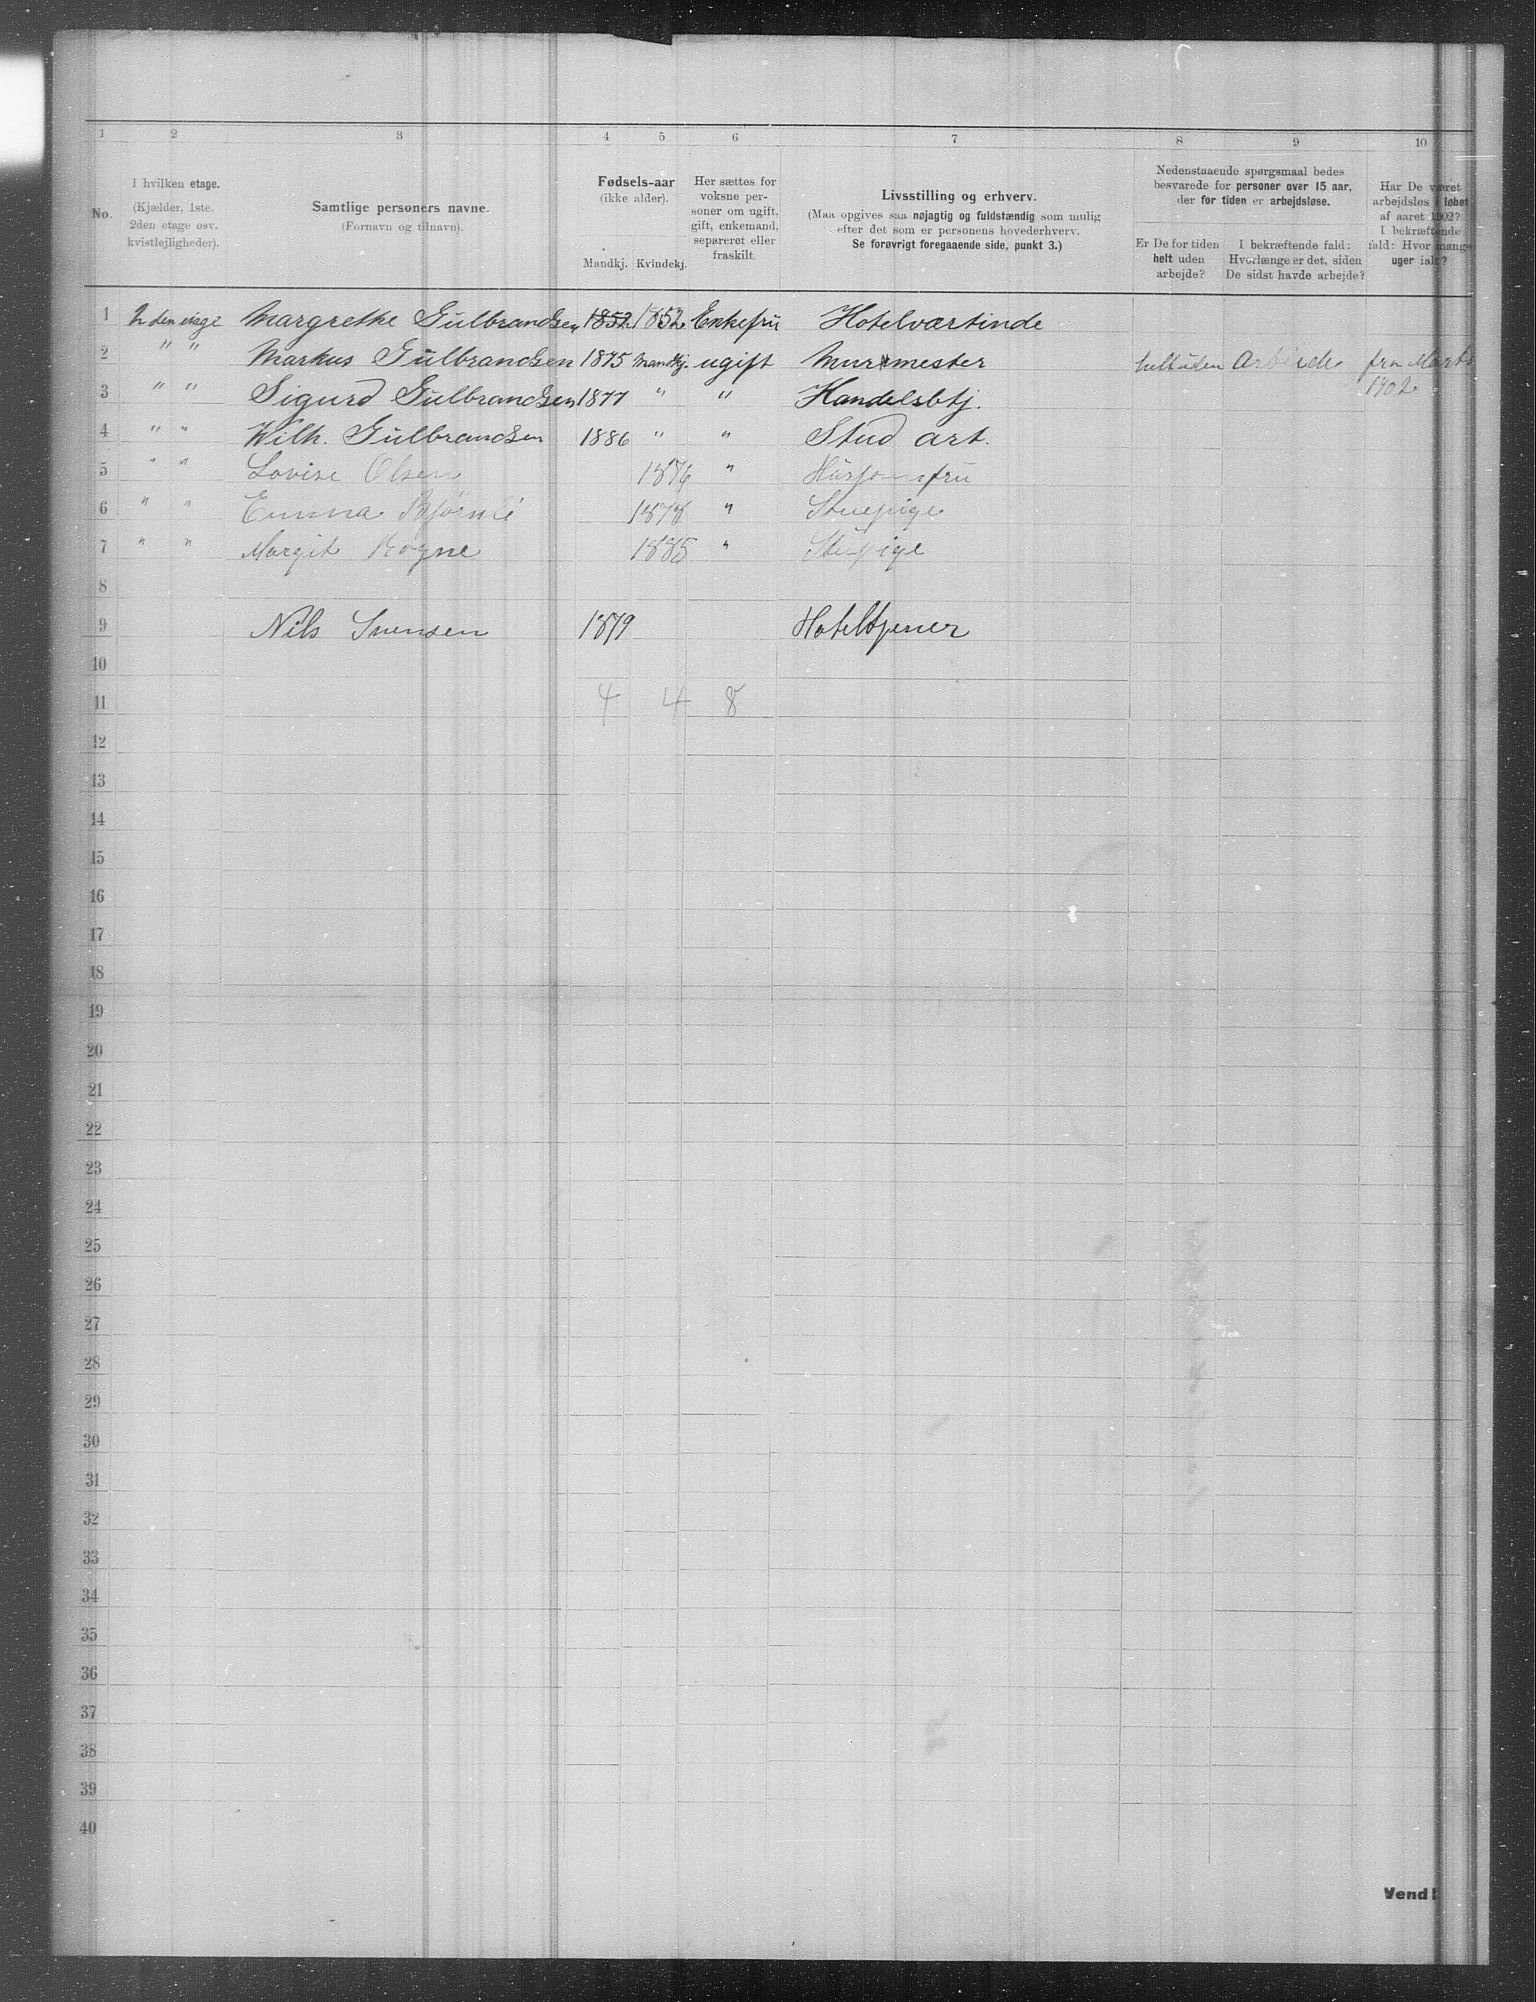 1 2 3 4 5 6 7 8 9 10
No.
I hvilken etage.
(Kjælder, 1ste,
2den etage osv.
kvistlejligheder).
Samtlige personers navne.
(Fornavn og tilnavn).
Fødsels-aar
(ikke alder).
Mandkj. Kvindekj.
Her sættes for
voksne per-
soner om ugift,
gift, enkemand,
separeret eller
fraskilt.
Livsstilling og erhverv.
(Maa opgives saa nøjagtig og fuldstændig som mulig
efter det som er personens hovederhverv.
Se forøvrigt foregaaende side, punkt 3.)
Nedenstaaende spørgsmaal bedes
besvarede for personer over 15 aar,
der for tiden er arbejdsløse.
Er De for tiden
helt uden
arbejde?
I bekræftende fald:
Hvorlænge er det, siden
De sidst havde arbejde?
Har De været
arbejdsløs i løbet
af aaret 1902?
I bekræftende
fald: Hvor mange
uger ialt?
1 2den etage Margrethe Gulbrandsen 1852 1852 Enkefru Hotelværtinde
2 " " Markus Gulbrandsen 1875 Mandkj. ugift Murmester helt uden Arbeide fra Marts
1902
3 " " Sigurd Gulbrandsen 1877 " " Handelsbtj.
4 " " Wilh. Gulbrandsen 1886 " " Stud art.
5 " " Lovise Olsen 1876 " Husjomfru
6 " " Emma Bjørnli 1878 " Stuepige
7 " " Margit Rogne 1885 " Stuepige
8
9 Nils Svensen 1879 Hoteltjener
10
11 4 4 8
12
13
14
15
16
17
18
19
20
21
22
23
24
25
26
27
28
29
30
31
32
33
34
35
36
37
38
39
40
Vend!